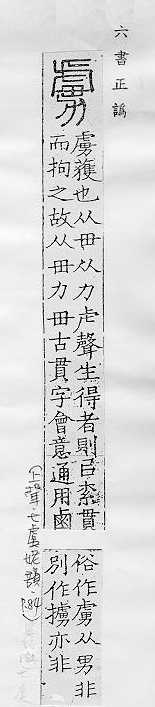 六書正譌
虜
虜獲也从毌从力虍聲生得者則㠯索貫
而拘之故从毌力毌古貫字會意通用鹵
俗作虜从男非
別作擄亦非
(上聲·七虞姥韻·